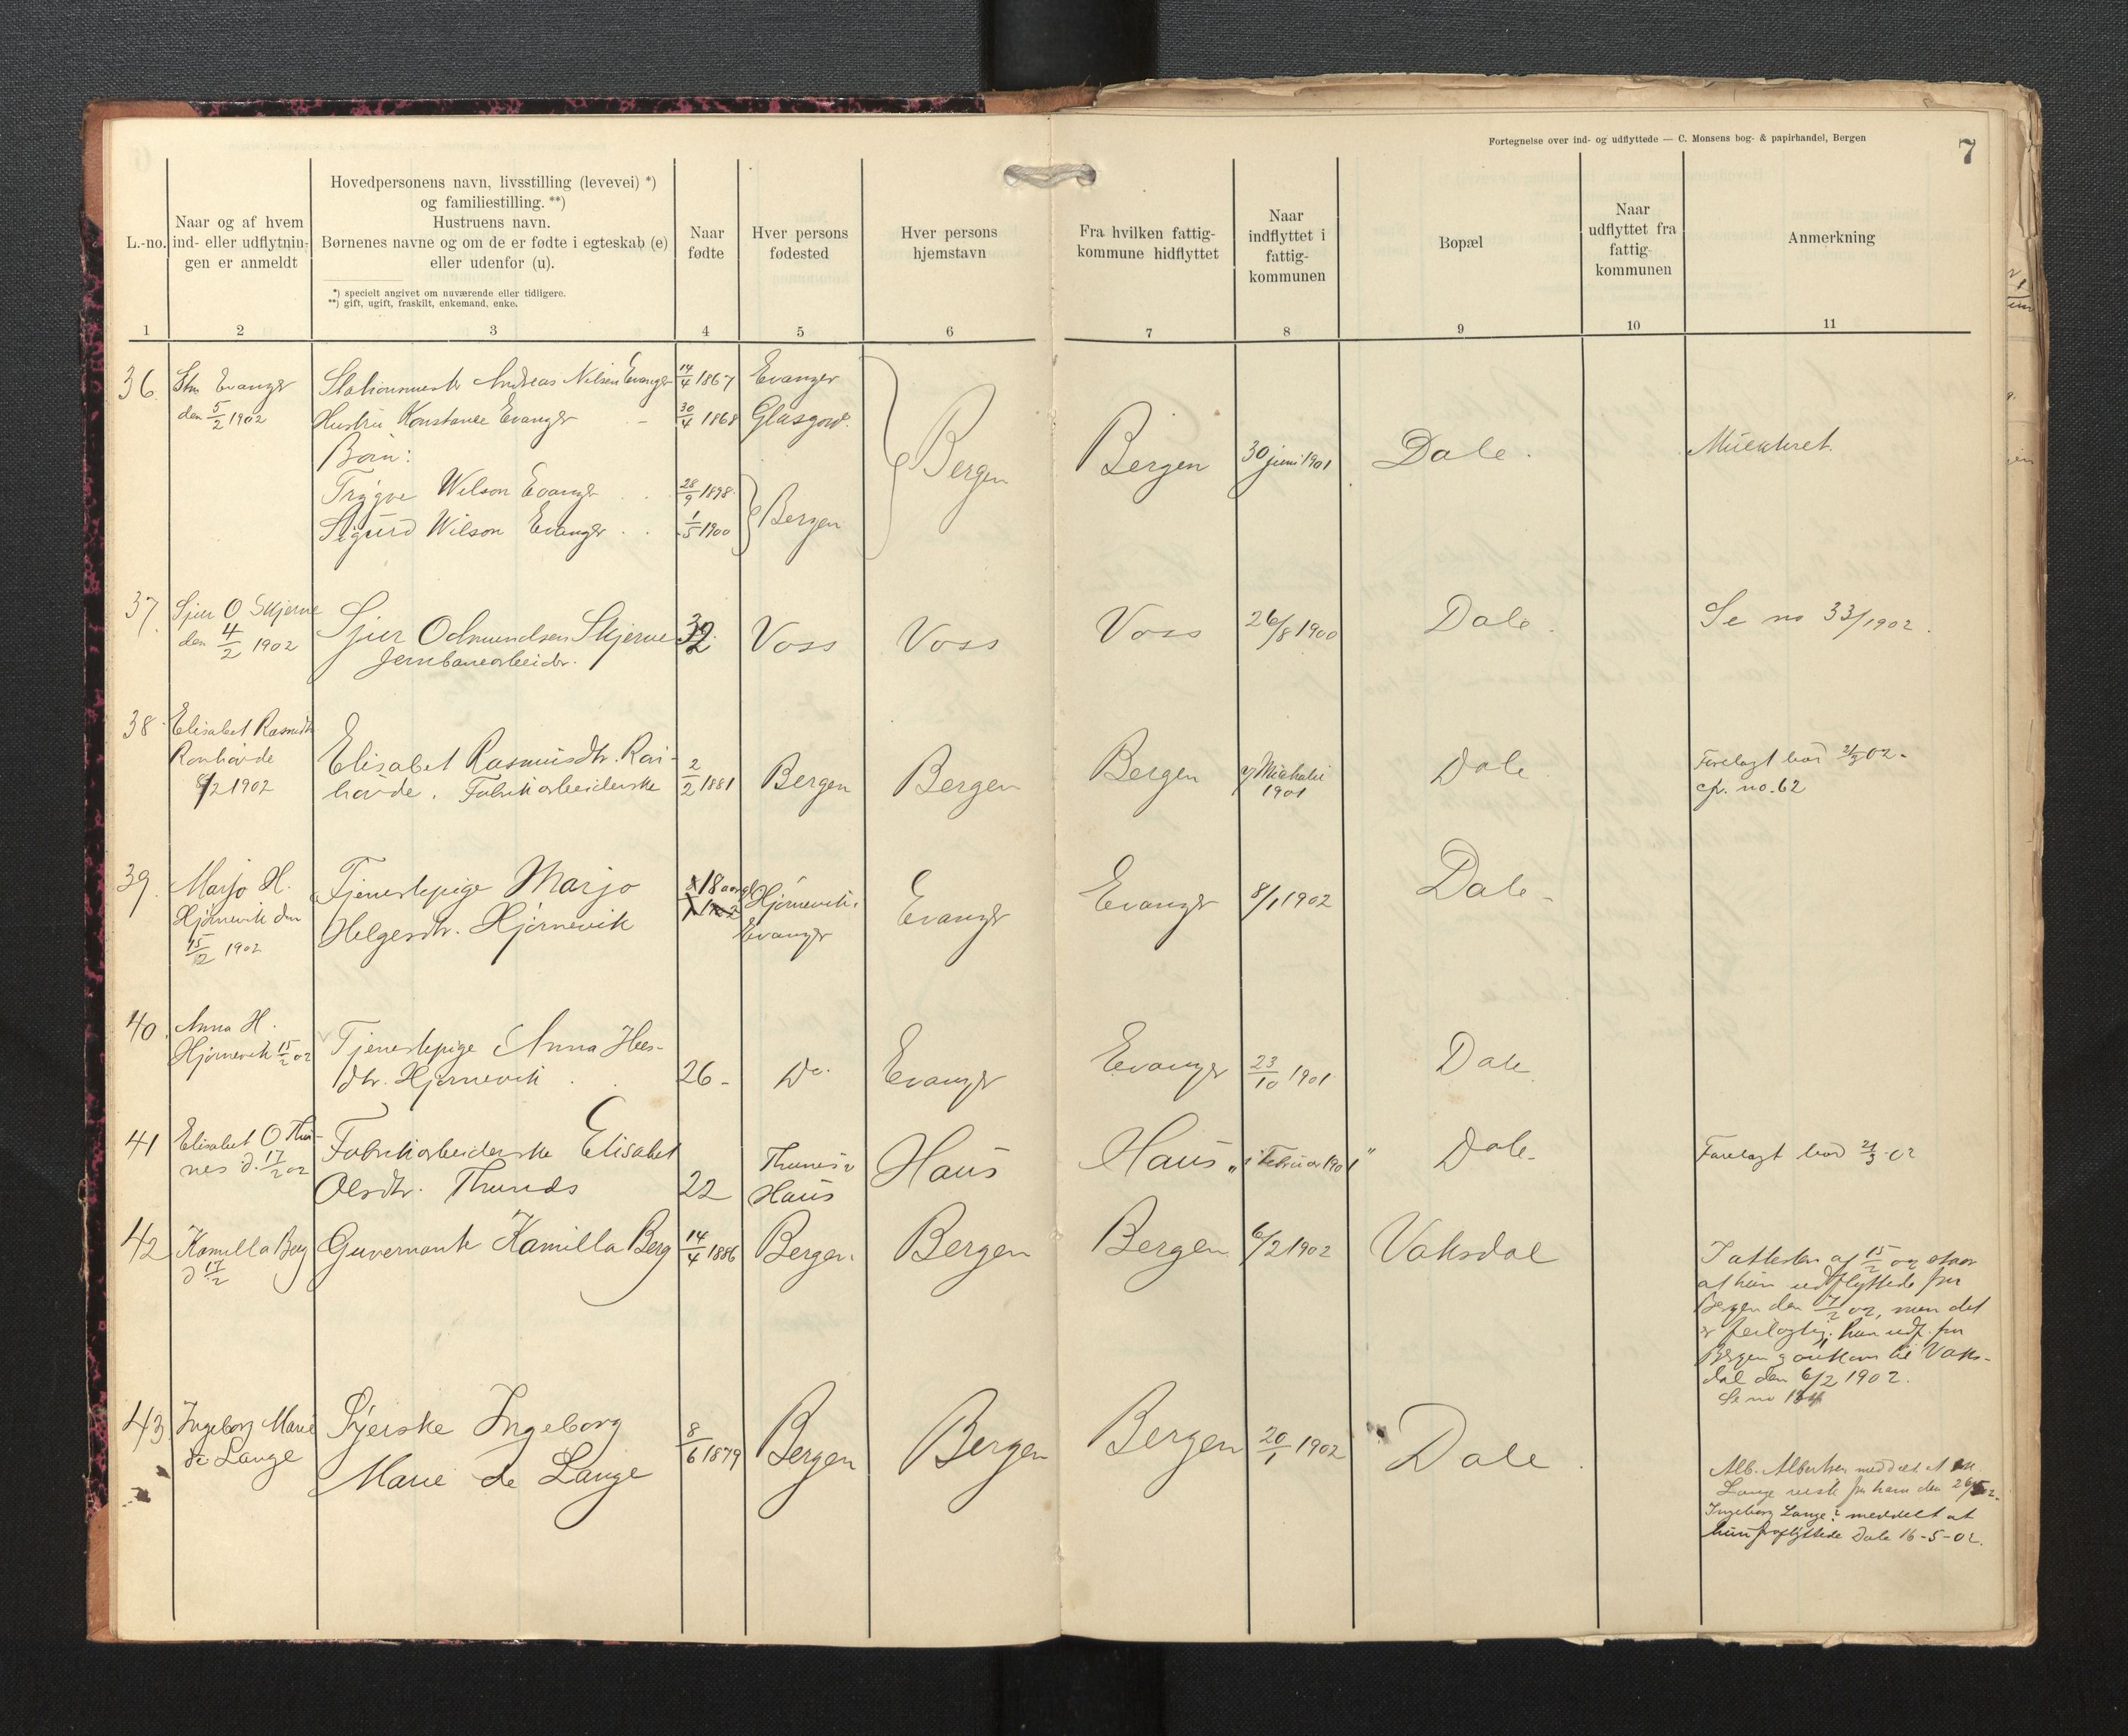 Fortegnelse over ind- og udflyttede — C. Monsens bog- & papirhandel, Bergen
7
L.-no.
Naar og af hvem
ind- eller udflytnin-
gen er anmeldt
Hovedpersonens navn, livsstilling (levevei) *)
og familiestilling. **)
Hustruens navn.
Børnenes navne og om de er fødte i egteskab (e)
eller udenfor (u).
*) specielt angivet om nuværende eller tidligere.
**) gift, ugift, fraskilt, enkemand, enke.
Naar
fødte
Hver persons
fødested
Hver persons
hjemstavn
Fra hvilken fattig-
kommune hidflyttet
Naar
indflyttet i
fattig-
kommunen
Bopæl
Naar
udflyttet fra
fattig-
kommunen
Anmerkning
1 2 3 4 5 6 7 8 9 10 11
36. Stm Evanger
den 5/2 1902
Stationsmester Andreas Nilsen Evanger 14/4 1867 Evanger
Hustru Konstance Evanger - 30/4 1868 Glasgow.
Børn:
Trygve Wilson Evanger 28/9 1898.
Sigurd Wilson Evanger 1/5 1900
Bergen
Bergen
Bergen 30 juni 1901 Dale.
37. Sjur O Skjerve
den 4/2 1902
Sjur Odmundsen Skjerve
Jernbanearbeider.
32 Voss Voss Voss 26/8 1900 Dale. Se no 33/1902.
38. Elisabet Rasmusdtr
Ronhövde
8/2 1902
Elisabet Rasmusdtr. Ron-
hövde. Fabrikarbeiderske
2/2 1881 Bergen Bergen Bergen Mickali
1901
Dale
Forelagt 2/3 02.
cfr. no. 62
39. Marjo H.
Hjørnevik den
15/2 1902
Tjenestepige Marjo
Helgesdtr. Hjørnevik
18 aar
Hjørnevik.
Evanger
Evanger Evanger 8/1 1902 Dale.
40. Anna H.
Hjørnevik 15/2 02
Tjenestepige Anna Hel-
dtr. Hjørnevik
26- Do. Evanger Evanger 23/10 1901 Dale.
41 Elisabet O Thu-
nes d. 17/2 02
Fabrikarbeiderske Elisabet
Olsdtr. Thunes
22 Thunes
Haus
Haus Haus "i Februar 1901" Dale. Forelagt 2/3 02
42 Kamilla Berg
d 17/2
Guvernante Kamilla Berg 14/4 1886 Bergen. Bergen Bergen 6/2 1902 Vaksdal
I attesten af 15/2 02 staar
at hun udflyttede fra
Bergen den 7/2 02, men det
er feilagtig, hun udf. fra
Bergen & ankom til Vaks-
dal den 6/2 1902.
Se no 134
43. Ingeborg Marie
de Lange
Syerske Ingeborg
Marie de Lange
8/6 1879 Bergen Bergen Bergen 20/1 1902 Dale.
Alb. Albertsen meddelt at
Lange reiste fra ham den
Ingeborg Lange: meddelt at
hun fraflyttede Dale 16-5-02.